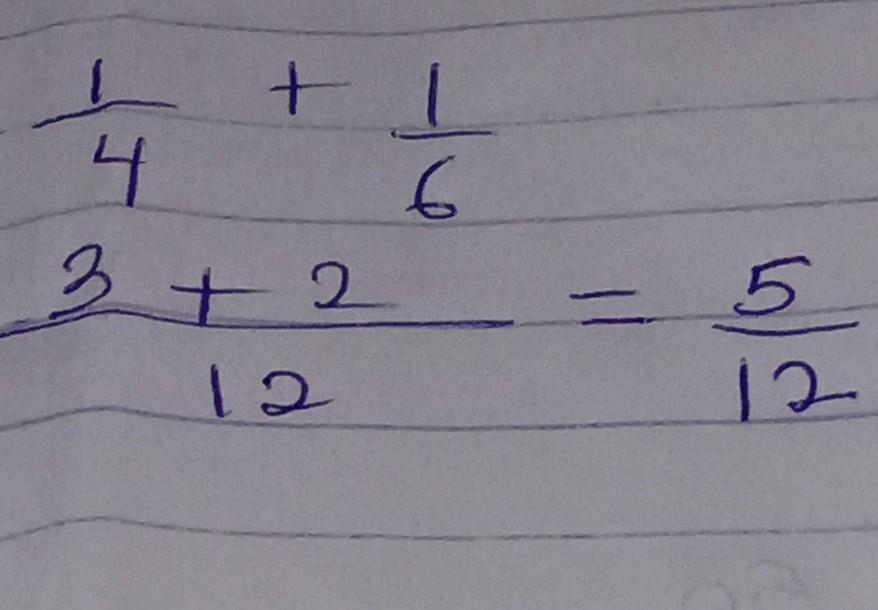 1/4 + 1/6
3 + 2/12 = 5/12